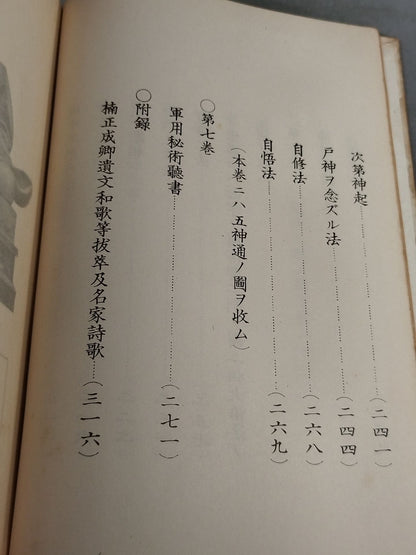 次第神起……………(二四一)
戸神ヲ念ズル法……………(二四四)
自修法……………(二六八)
自悟法……………(二六九)
(本巻ニハ五神通ノ圖ヲ收ム)
〇第七巻
軍用秘術聽書……………(二七一)
〇附録
楠正成卿遺文和歌等拔萃及名家詩歌……(三一六)